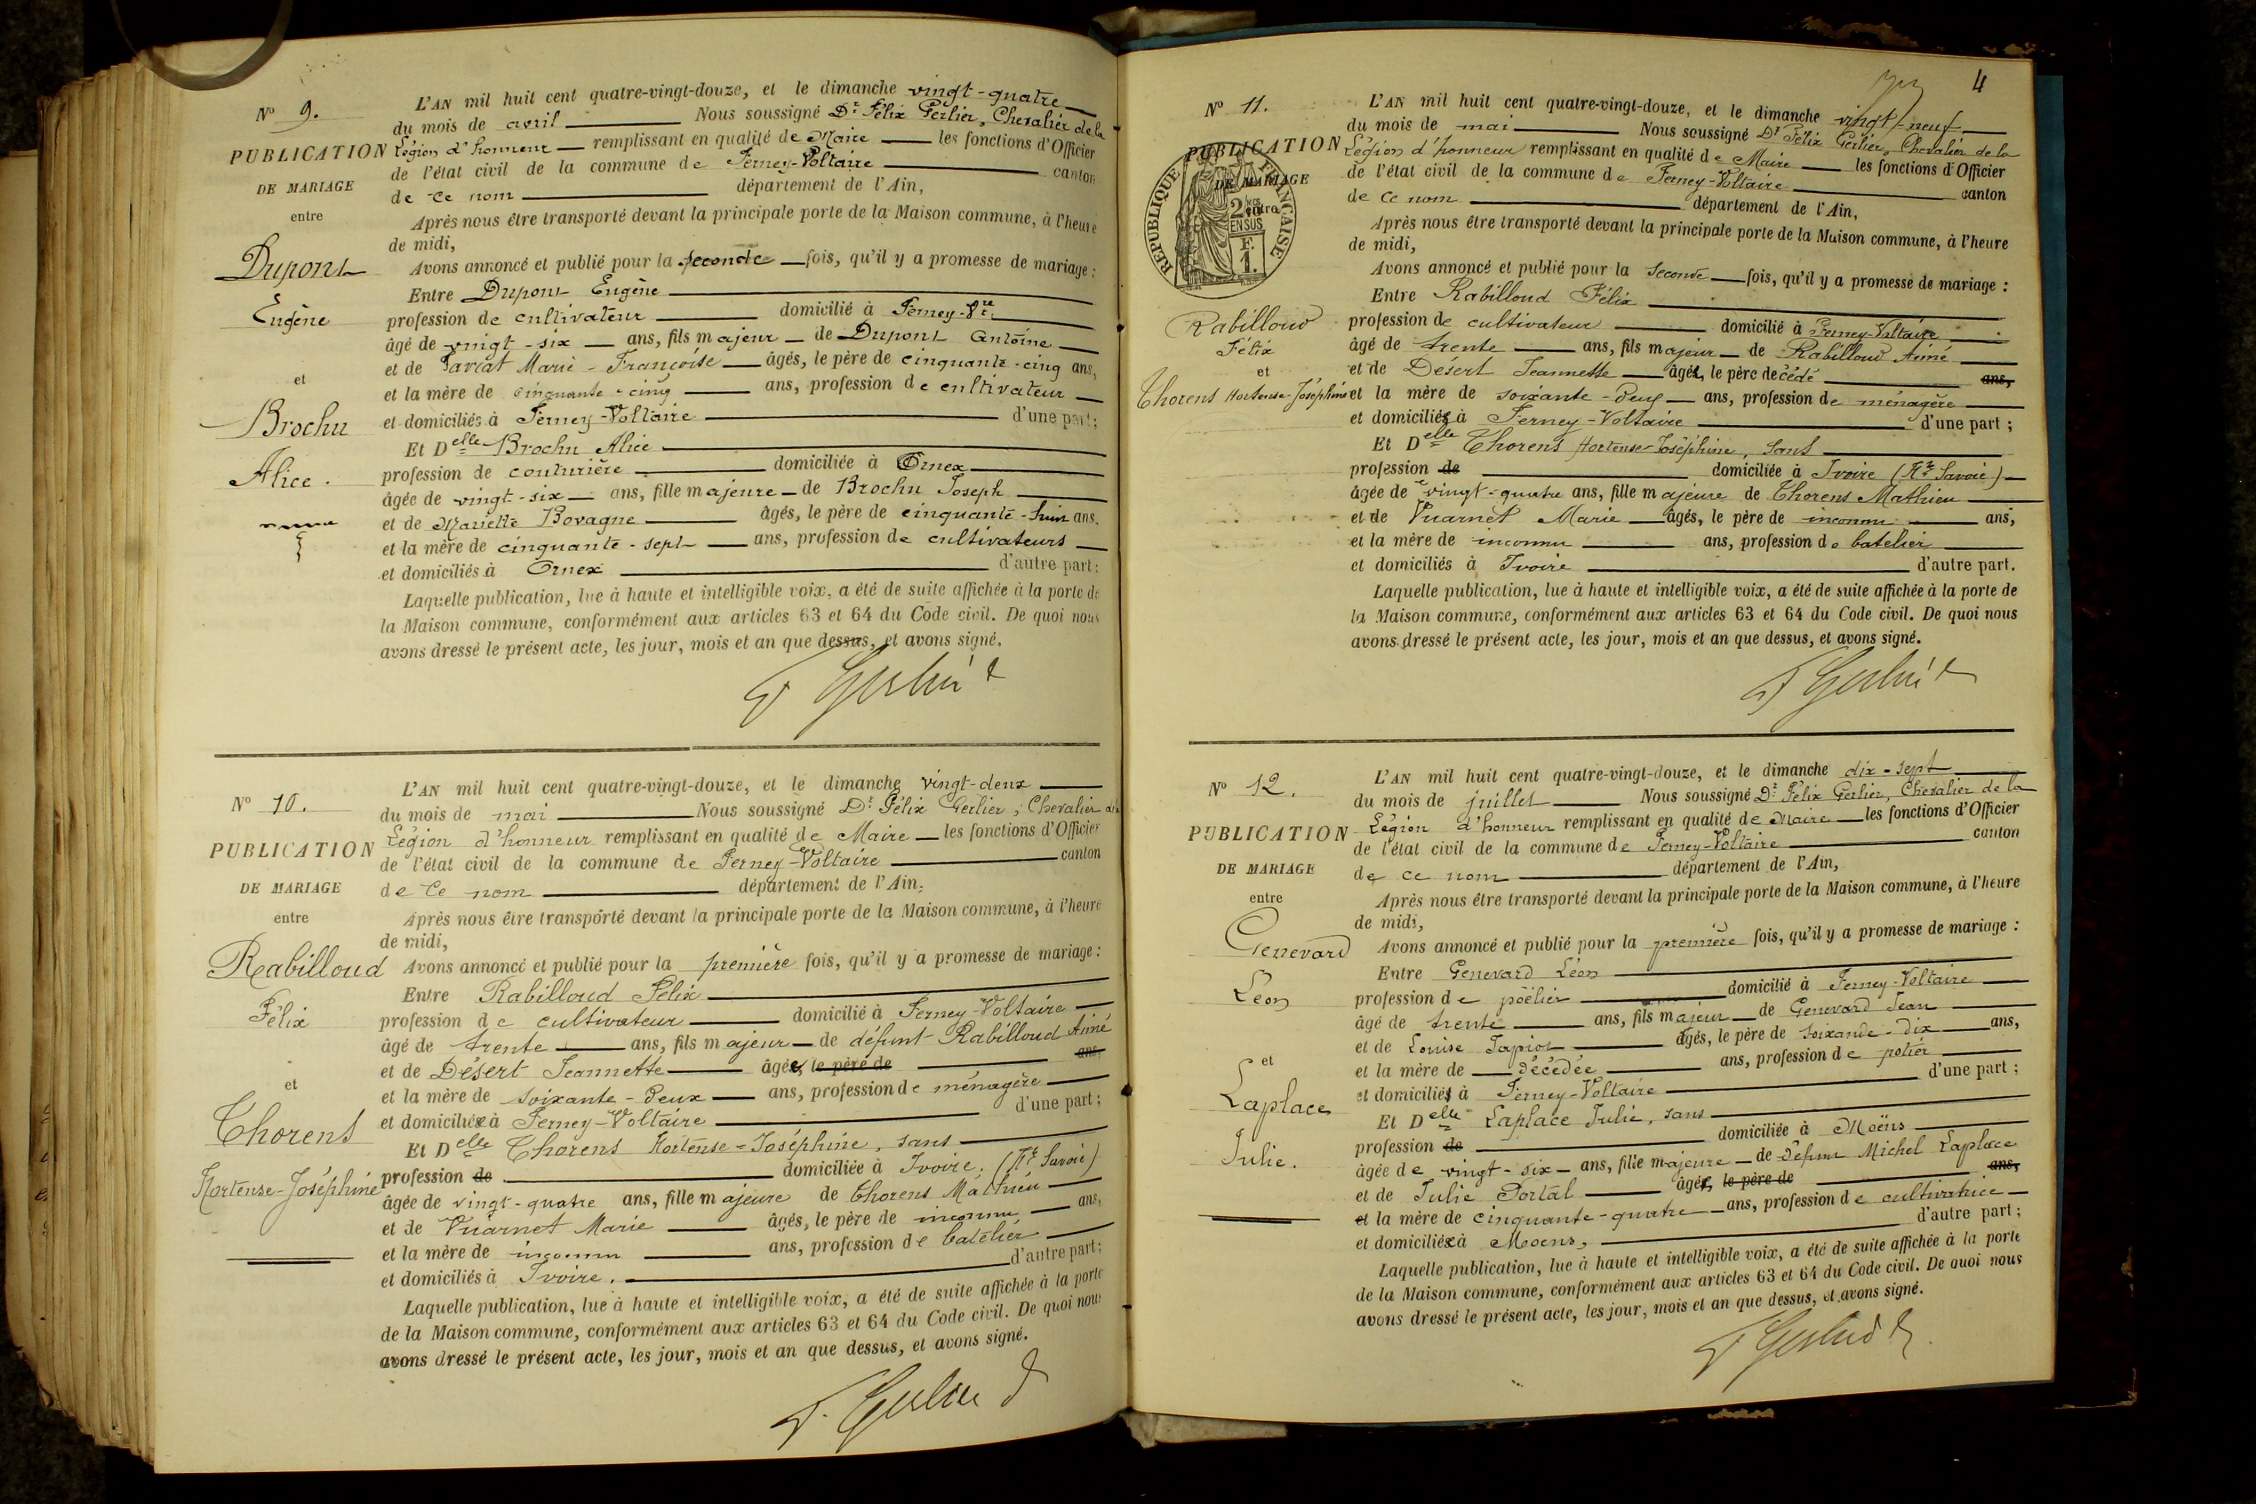 N° 9.
PUBLICATION
DE MARIAGE
entre
Dupont
Eugène
et
Brochu
Alice.
L'AN mil huit cent quatre-vingt-douze, et le dimanche vingt-quatre
du mois de avril Nous soussigné Dr Félix Gerlier, Chevalier de la
Légion d'honneur remplissant en qualité de Maire les fonctions d'Officier
de l'état civil de la commune de Ferney-Voltaire canton
de ce nom département de l'Ain,
Après nous être transporté devant la principale porte de la Maison commune, à l'heure
de midi,
Avons annoncé et publié pour la seconde fois, qu'il y a promesse de mariage :
Entre Dupont Eugène
profession de cultivateur domicilié à Ferney-Vre
âgé de vingt-six ans, fils majeur de Dupont Antoine
et de Marie-Françoise âgés, le père de cinquante-cinq ans,
et la mère de cinquante-cinq ans, profession de cultivateur
et domiciliés à Ferney-Voltaire d'une part ;
Et Delle Brochu Alice
profession de couturière domiciliée à Ornex
âgée de vingt-six ans, fille majeure de Brochu Joseph
et de Mariette Bovagne âgés, le père de cinquante-huit ans.
et la mère de cinquante-sept ans, profession de cultivateurs
et domiciliés à Ornex d'autre part ;
Laquelle publication, lue à haute et intelligible voix, a été de suite affichée à la porte de
la Maison commune, conformément aux articles 63 et 64 du Code civil. De quoi nous
avons dressé le présent acte, les jour, mois et an que dessus, et avons signé.
F Gerlier
N° 10.
PUBLICATION
DE MARIAGE
entre
Rabilloud
Félix
et
Thorens
Hortense-Joséphine
L'AN mil huit cent quatre-vingt-douze, et le dimanche vingt-deux
du mois de mai Nous soussigné Dr Félix Gerlier, Chevalier de la
Légion d'honneur remplissant en qualité de Maire les fonctions d'Officier
de l'état civil de la commune de Ferney-Voltaire canton
de ce nom département de l'Ain,
Après nous être transporté devant la principale porte de la Maison commune, à l'heure
de midi,
Avons annoncé et publié pour la première fois, qu'il y a promesse de mariage :
Entre Rabilloud Félix
profession de cultivateur domicilié à Ferney-Voltaire
âgé de trente ans, fils majeur de défunt Rabilloud Aimé
et de Désert Jeannette âgée, le père de ans,
et la mère de soixante-deux ans, profession de ménagère
et domiciliée à Ferney-Voltaire d'une part ;
Et Delle Thorens Hortense-Joséphine, sans
profession de domiciliée à Ivoire, (Hte Savoie)
âgée de vingt-quatre ans, fille majeure de Thorens Mathieu
et de Vuarnet Marie âgés, le père de inconnu ans,
et la mère de inconnu ans, profession de batelier
et domiciliés à Ivoire. d'autre part ;
Laquelle publication, lue à haute et intelligible voix, a été de suite affichée à la porte
de la Maison commune, conformément aux articles 63 et 64 du Code civil. De quoi nous
avons dressé le présent acte, les jour, mois et an que dessus, et avons signé.
F. Gerlier
4
N° 11.
PUBLICATION
DE MARIAGE
entre
RÉPUBLIQUE FRANÇAISE
Rabilloud
Félix
et
Thorens Hortense-Joséphine
L'AN mil huit cent quatre-vingt-douze, et le dimanche vingt-neuf
du mois de mai Nous soussigné Dr Félix Gerlier, Chevalier de la
Légion d'honneur remplissant en qualité de Maire les fonctions d'Officier
de l'état civil de la commune de Ferney-Voltaire canton
de ce nom département de l'Ain,
Après nous être transporté devant la principale porte de la Maison commune, à l'heure
de midi,
Avons annoncé et publié pour la seconde fois, qu'il y a promesse de mariage :
Entre Rabilloud Félix
profession de cultivateur domicilié à Ferney-Voltaire
âgé de trente ans, fils majeur de Rabilloud Aimé
et de Désert Jeannette âgés, le père décédé ans,
et la mère de soixante-deux ans, profession de ménagère
et domiciliés à Ferney-Voltaire d'une part ;
Et Delle Thorens Hortense-Joséphine, sans
profession de domiciliée à Ivoire (Hte Savoie)
âgée de vingt-quatre ans, fille majeure de Thorens Mathieu
et de Vuarnet Marie âgés, le père de inconnu ans,
et la mère de inconnu ans, profession de batelier
et domiciliés à Ivoire d'autre part.
Laquelle publication, lue à haute et intelligible voix, a été de suite affichée à la porte de
la Maison commune, conformément aux articles 63 et 64 du Code civil. De quoi nous
avons dressé le présent acte, les jour, mois et an que dessus, et avons signé.
F Gerlier
N° 12.
PUBLICATION
DE MARIAGE
entre
Genevard
Léon
et
Laplace
Julie.
L'AN mil huit cent quatre-vingt-douze, et le dimanche dix-sept
du mois de juillet Nous soussigné Dr Félix Gerlier, Chevalier de la
Légion d'honneur remplissant en qualité de Maire les fonctions d'Officier
de l'état civil de la commune de Ferney-Voltaire canton
de ce nom département de l'Ain,
Après nous être transporté devant la principale porte de la Maison commune, à l'heure
de midi,
Avons annoncé et publié pour la première fois, qu'il y a promesse de mariage :
Entre Genevard Léon
profession de poëlier domicilié à Ferney-Voltaire
âgé de trente ans, fils majeur de Genevard Jean
et de Louise Tapior âgés, le père de soixante-dix ans,
et la mère de décédée ans, profession de potier
et domiciliés à Ferney-Voltaire d'une part ;
Et Delle Laplace Julie, sans
profession de domiciliée à Moëns
âgée de vingt-six ans, fille majeure de défunt Michel Laplace
et de Julie Portal âgée, le père de ans,
et la mère de cinquante-quatre ans, profession de cultivatrice
et domiciliée à Moens, d'autre part ;
Laquelle publication, lue à haute et intelligible voix, a été de suite affichée à la porte
de la Maison commune, conformément aux articles 63 et 64 du Code civil. De quoi nous
avons dressé le présent acte, les jour, mois et an que dessus, et avons signé.
F Gerlier